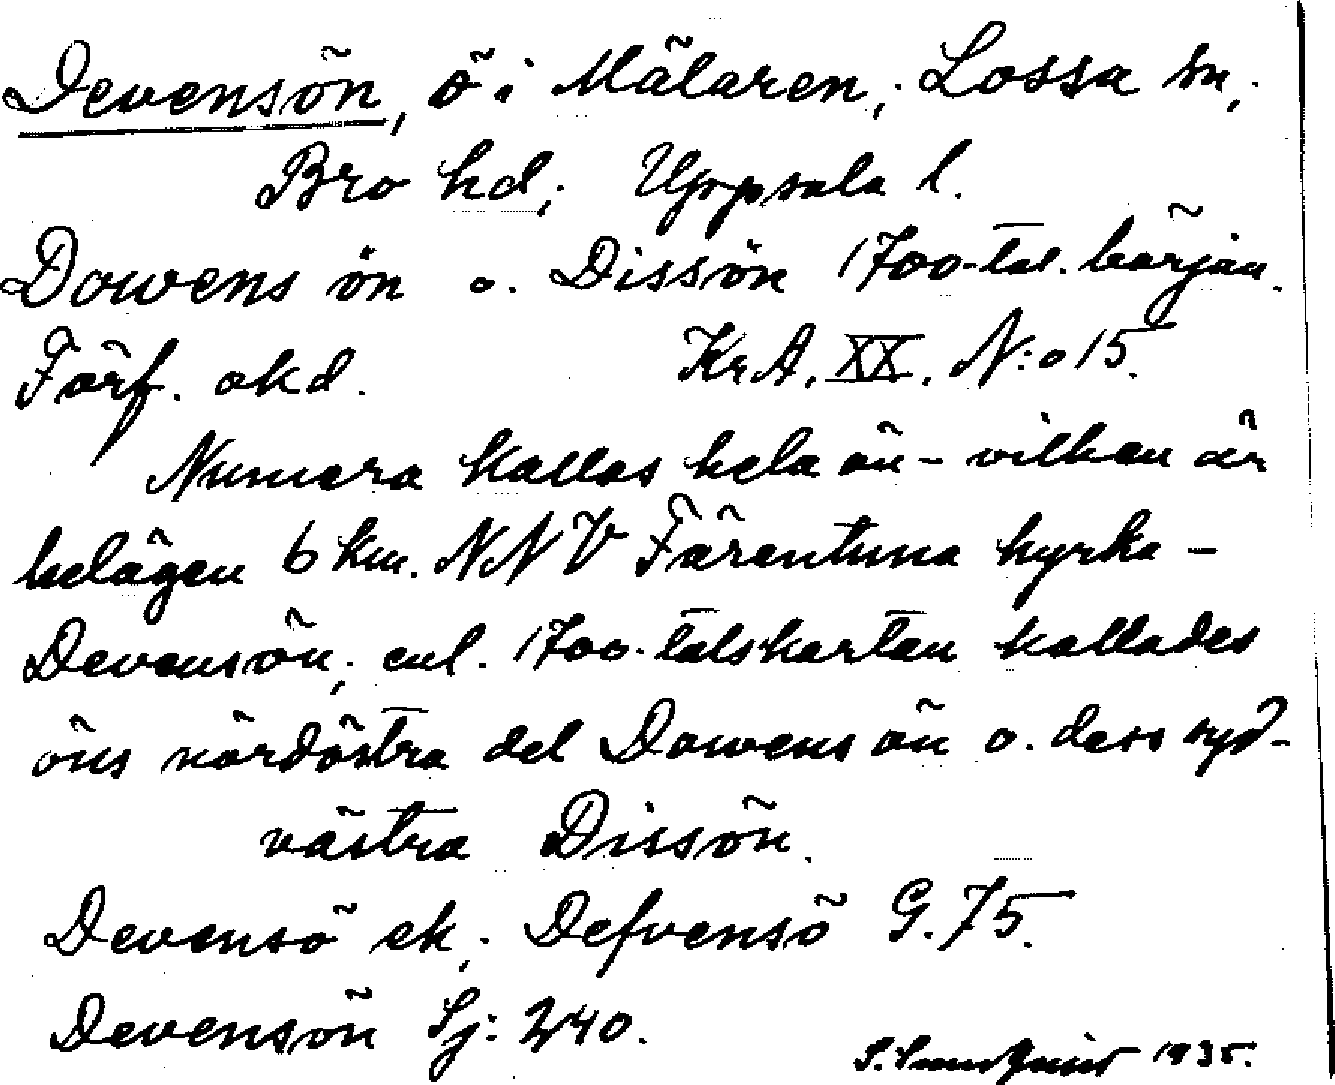 Devensön, ö i Mälaren; Lossa sn,
Bro hd; Uppsala l.
Dowens ön o. Dissön 1700-tal. början.
Förf. okd. KrA, XX, N:o 15.
Numera kallas hela ön - vilken är
belägen 6 km. NNV Färentuna kyrka -
Devensön; enl. 1700-talskartan kallades
öns nordöstra del Dowens ön o. dess syd-
västra Dissön.
Devensö ek; Defvensö G. 75.
Devensön Sj: 240.
1935.